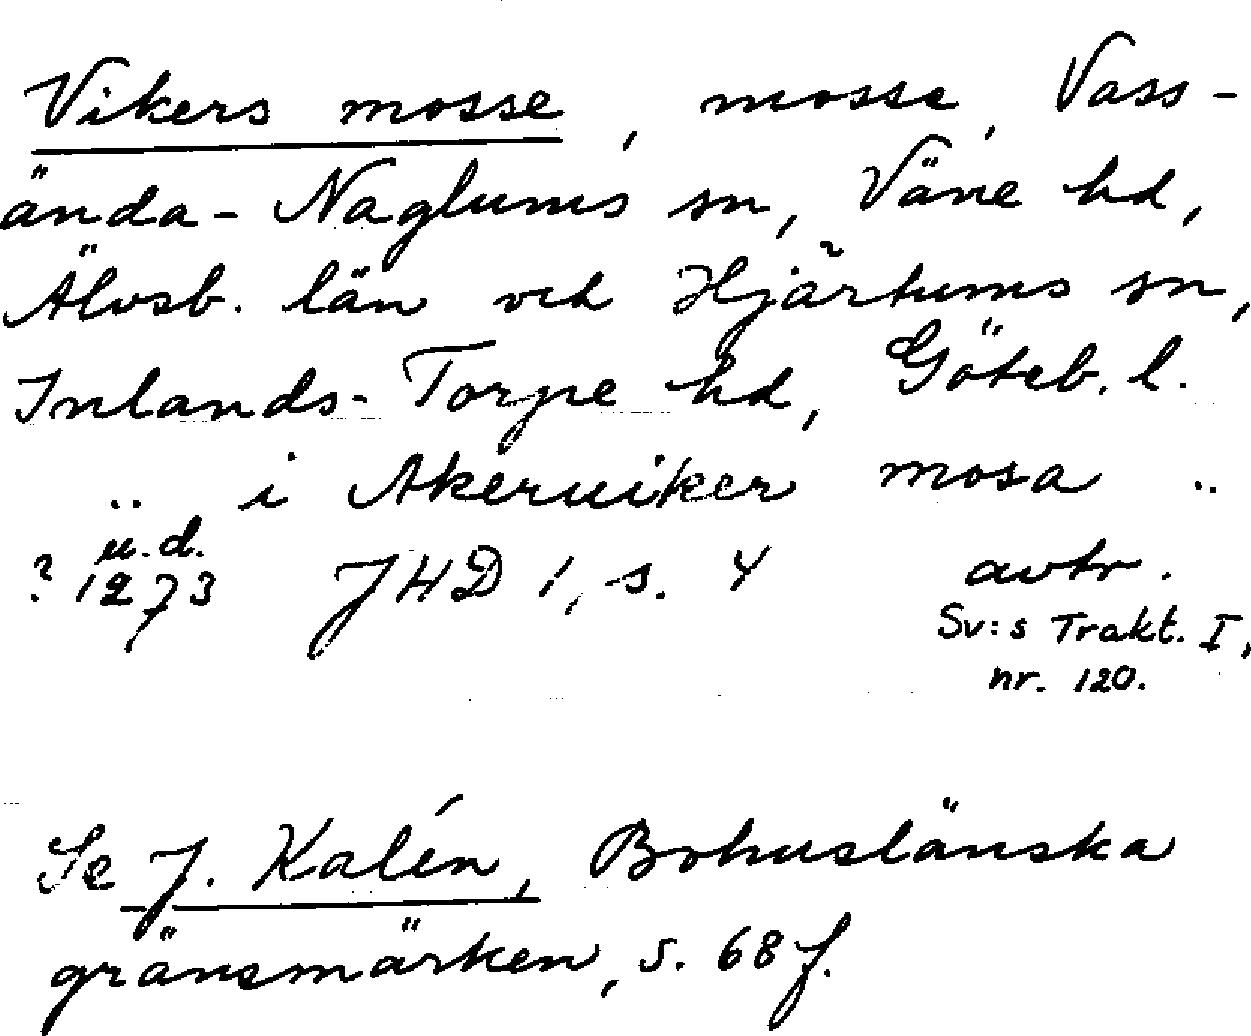 Vikers mosse, mosse, Vass-
ända-Naglums sn, Väne hd,
Älvsb. län och Hjärtums sn,
Inlands-Torpe hd, Göteb. l.
.. i Akeruiker mosa ..
u.d.
? 1273 JHD 1, s. 4 avtr.
Sv:s Trakt. I,
nr. 120.
Se J. Kalén, Bohuslänska
gränsmärken, s. 68 f.